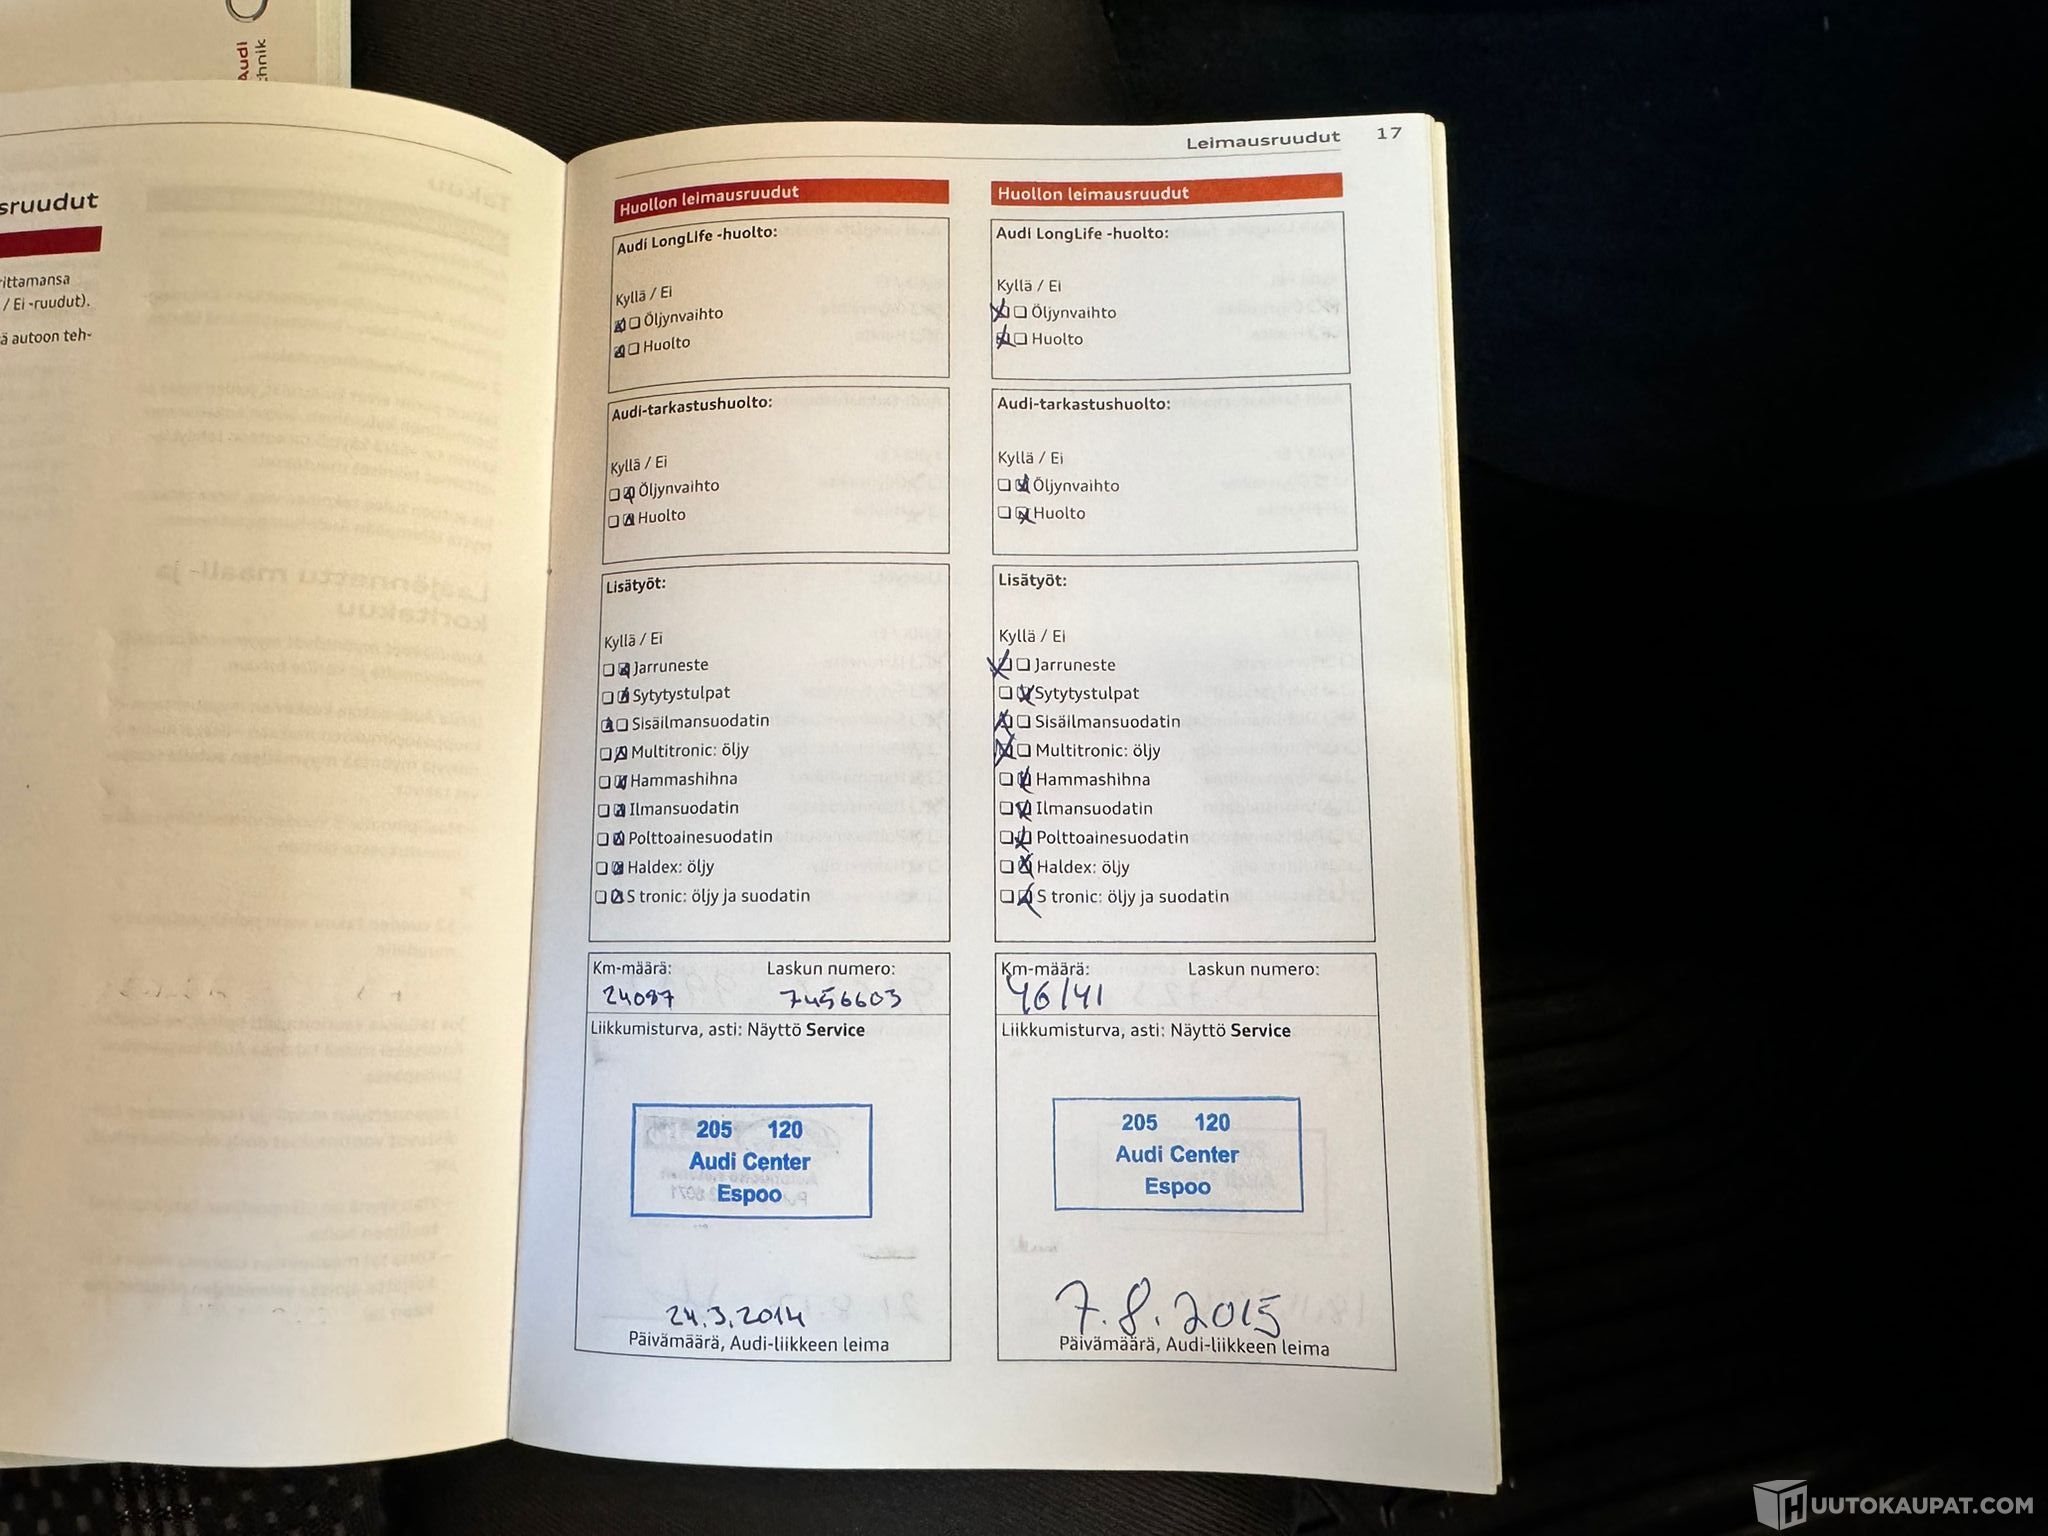 Audi
chnik
sruudut
rittamansa
/ Ei -ruudut).
ä autoon teh-
Leimausruudut 17
Huollon leimausruudut
Audi LongLife -huolto:
Kyllä / Ei
Öljynvaihto
Huolto
Audi-tarkastushuolto:
Kyllä / Ei
Öljynvaihto
Huolto
Lisätyöt:
Kyllä / Ei
Jarruneste
Sytytystulpat
Sisäilmansuodatin
Multitronic: öljy
Hammashihna
Ilmansuodatin
Polttoainesuodatin
Haldex: öljy
S tronic: öljy ja suodatin
Km-määrä: Laskun numero:
24087 7456603
Liikkumisturva, asti: Näyttö Service
205 120
Audi Center
Espoo
24.3.2014
Päivämäärä, Audi-liikkeen leima
Huollon leimausruudut
Audi LongLife -huolto:
Kyllä / Ei
Öljynvaihto
Huolto
Audi-tarkastushuolto:
Kyllä / Ei
Öljynvaihto
Huolto
Lisätyöt:
Kyllä / Ei
Jarruneste
Sytytystulpat
Sisäilmansuodatin
Multitronic: öljy
Hammashihna
Ilmansuodatin
Polttoainesuodatin
Haldex: öljy
S tronic: öljy ja suodatin
Km-määrä: Laskun numero:
46141
Liikkumisturva, asti: Näyttö Service
205 120
Audi Center
Espoo
7.8.2015
Päivämäärä, Audi-liikkeen leima
HUUTOKAUPAT.COM